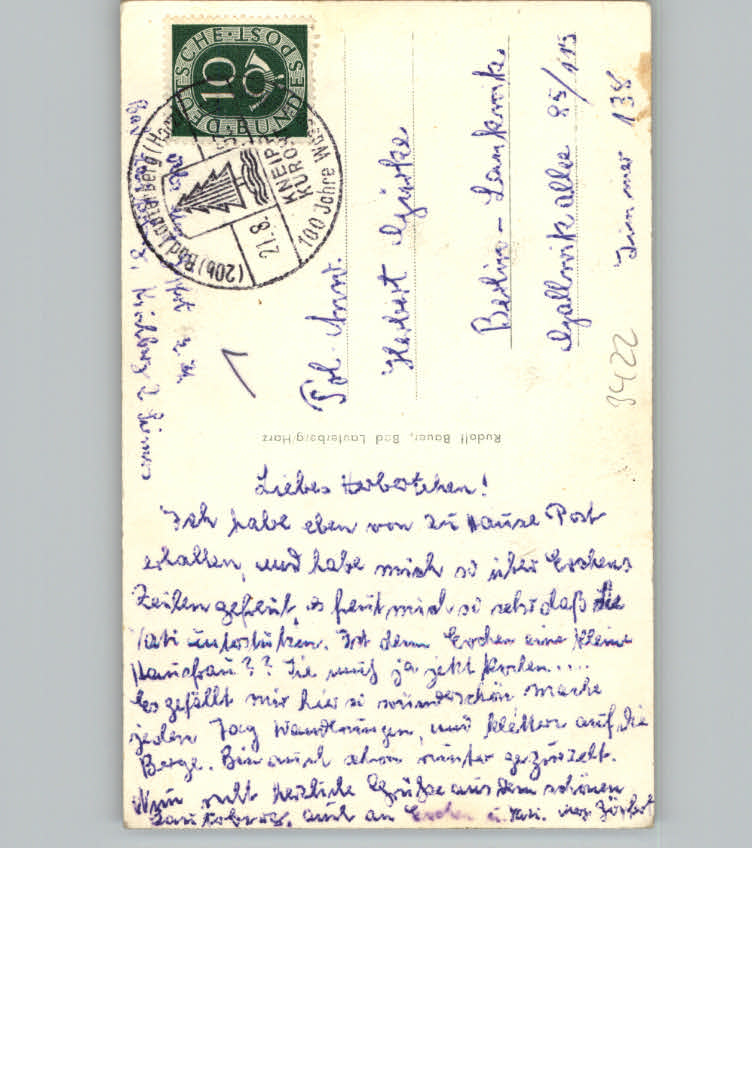 DEUTSCHE · BUNDESPOST
10
(20b) Bad Lauterberg (Harz)
KNEIPP
KURO
21.8.
100 Jahre Wass
Bad
3. Kneipp
Pol.-Anw.
Herbert Gürke
Berlin - Lankwitz
Gallwitzallee 85/115
Zimmer 138
3422
1
Rudolf Bauer, Bad Lauterberg/Harz
Liebes Herbertchen!
Ich habe eben von zu Hause Post
erhalten, und habe mich so über Evchens
Zeilen gefreut, es freut mich so sehr daß Sie
Vati unterstützen. Ist denn Evchen eine kleine
Hausfrau?? Sie muß ja jetzt kochen....
Es gefällt mir hier so wunderschön mache
jeden Tag Wanderungen, und klettere auf die
Berge. Bin auch schon runter gepurzelt.
Nun recht herzliche Grüße aus dem schönen
Lauterberg, auch an Evchen u. Vati.